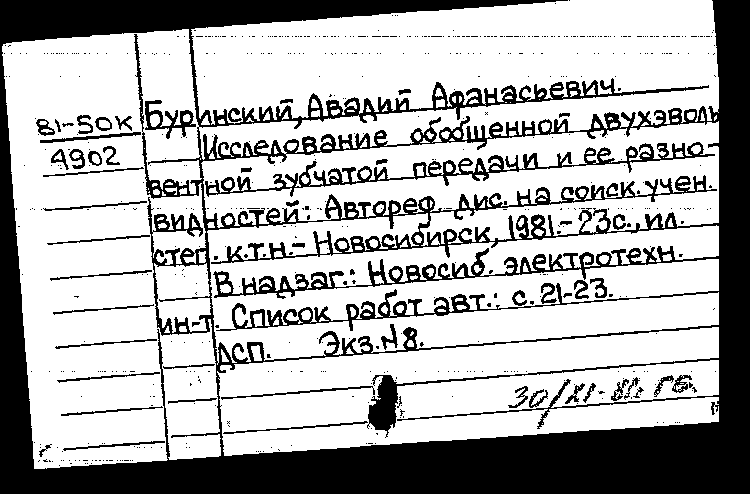 81-50К Буринский, Авадий Афанасьевич.
4902 Исследование обобщенной двухэволь
вентной зубчатой передачи и ее разно-
видностей: Автореф. дис. на соиск. учен.
степ. к.т.н. - Новосибирск, 1981. - 23с., ил.
В надзаг.: Новосиб. электротехн.
ин-т. Список работ авт.: с. 21-23.
ДСП. Экз. № 8.
30/XI-81г